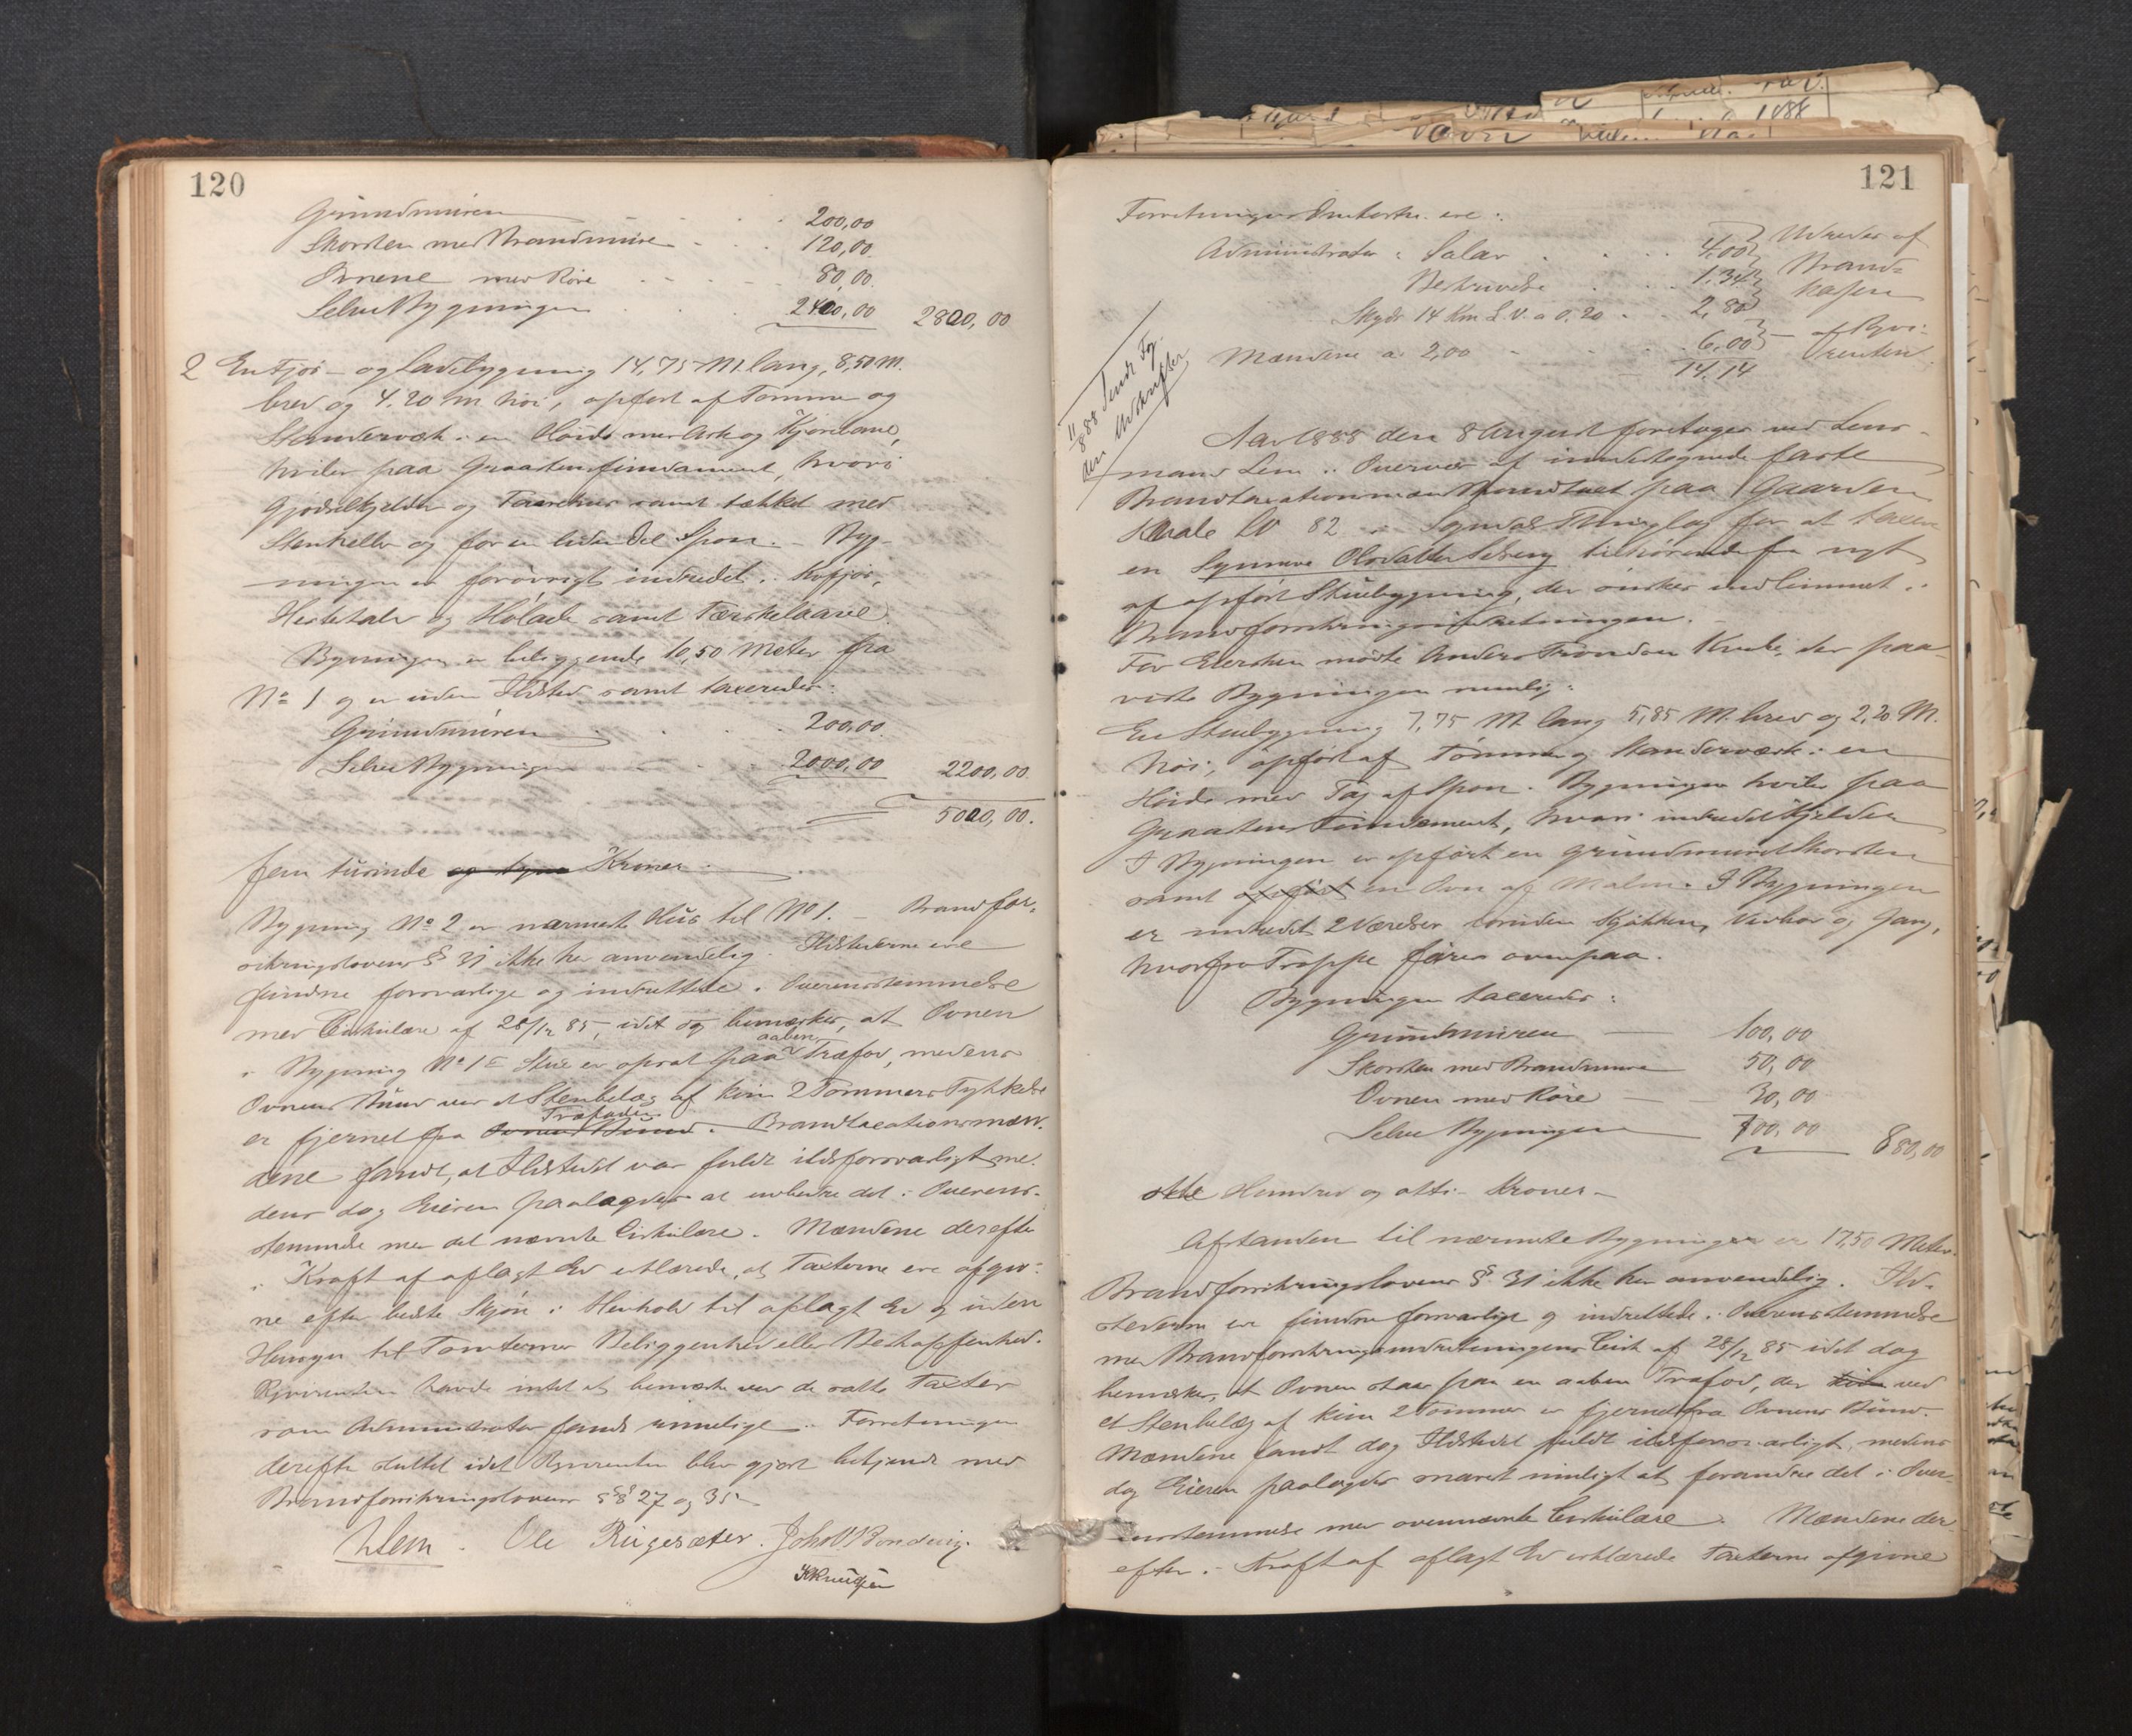 120
Grundmuren . . . 200,00
Skorsten med Brandmure . . . 120,00
Ovnene med Rør . . . 80,00
Selve Bygningen . . . 2400,00 2800,00
2 En Fjøs- og Ladebygning 14,75 M. lang, 8,50 M.
bred og 4.20 m høi, opført af Tømmer og
Standerværk i en Høide med Ark og Kjørelane,
hviler paa Graastensfundament, hvori
Gjødselkjelder og samt tækket med
Stenheller og for en liden Del Spon. - Byg-
ningen er forøvrigt indredet i Kofjøs,
Hestestald og Hølade samt Tærskelaave.
Bygningen er beliggende 10,50 Meter fra
No 1 og er uden Ildsted samt taxeredes:
Grundmuren . . . 200,00
Selve Bygningen . . . 2000,00 2200,00
5000,00.
fem tusinde Kroner.
Bygning No 2 er nærmeste Hus til No 1. - Brandfor-
sikringslovens § 31 ikke her anvendelig. Ildstederne ere
fundne forsvarlige og indrettede i Overensstemmelse
med Cirkulære af 28/12 85, idet dog bemærkes, at Ovnen
i Bygning No 1 Stue er opsat paa aaben Træfod, medens
Ovnens Bund ved et Stenbelæg af kun 2 Tommers Tykkelse
er fjernet fra Træfoden. Brandtaxationsmæn-
dene fandt, at Ildstedet var fuldt ildsforsvarligt me-
dens dog Eieren paalagdes at udbedre det i Overens-
stemmelse med det nævnte Cirkulære. Mændene derefter
i Kraft af aflagt Ed erklærede, at Taxterne ere afgiv-
ne efter bedste Skjøn i Henhold til aflagt Ed og uden
Hensyn til Tomternes Beliggenhed eller Beskaffenhed.
Rekvirenten havde intet at bemærke ved de satte Taxter
som Administrator fandt rimelige. Forretningen
derefter sluttet idet Rekvirenten blev gjort bekjendt med
Brandforsikringslovens §§ 27 og 35
Lem. Ole Rügesæter. Joh. O. Bondevig.
K Knudsen
121
Forretningens Omkostn. ere:
Administrator: Salær . . . 4,00 Udredes af
Beskrivelse . . . 1,34 Brand-
Skyds 14 Km L.V. a 0.20 . . . 2,80 kassen
Mændene a. 2,00 . . . 6,00 - af Rekvi-
14,14 renten.
888 Sendt Fog-
den Udskrifter
Aar 1888 den 8 August foretoges ved Lens-
mand Lem i Overvær af undertegnede faste
Brandtaxationsmænd Brandtaxt paa Gaarden
Kvale LN 82 i Sogndal Thinglag for at taxere
en Synneve Olsdatter tilhørende fra nyt
af opført Stuebygning, der ønskes indlemmet i
Brandforsikringsindretningen.
For Eiersken mødte Anders Trondsen Kvale, der paa-
viste Bygningen nemlig:
En Stuebygning 7,75 M. lang 5,85 M. bred og 2,20 M.
høi, opført af Tømmer og Standerværk i en
Høide med Tag af Spon. Bygningen hviler paa
Graastens Fundament, hvori indredet Kjelder
I Bygningen er opført en grundmuret Skorsten
samt opført en Ovn af Malm. I Bygningen
er indredet 2 Værelser foruden Kjøkken, Vedbod og Gang,
hvorfra Trappe fører ovenpaa.
Bygningen taxeredes:
Grundmuren 100,00
Skorsten med Brandmure 50,00
Ovnen med Røre 30,00
Selve Bygningen 700,00 880,00
otte Hundred og otti Kroner
Afstanden til nærmeste Bygninger er 17,50 Meter.
Brandforsikringslovens § 31 ikke her anvendelig. Ild-
stederne ere fundne forsvarlige og indrettede i Overensstemmelse
med Brandforsikringsindretningens Cirk af 28/12 85 idet dog
bemærkes, at Ovnen staar paa en aaben Træfod, der ved
et Stenbelæg af kun 2 Tommer er fjernet fra Ovnens Bund.
Mændene fandt dog Ildstedet fuldt ildsforsvarligt, medens
dog Eieren paalagdes snarest muligt at forandre det i Over-
ensstemmelse med ovennævnte Cirkulære. Mændene der-
efter i Kraft af aflagt Ed erklærede Taxterne afgivne